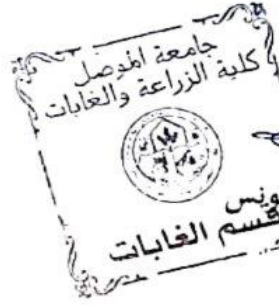 جامعة الموصل
كلية الزراعة والغابات
يونس
قسم الغابات